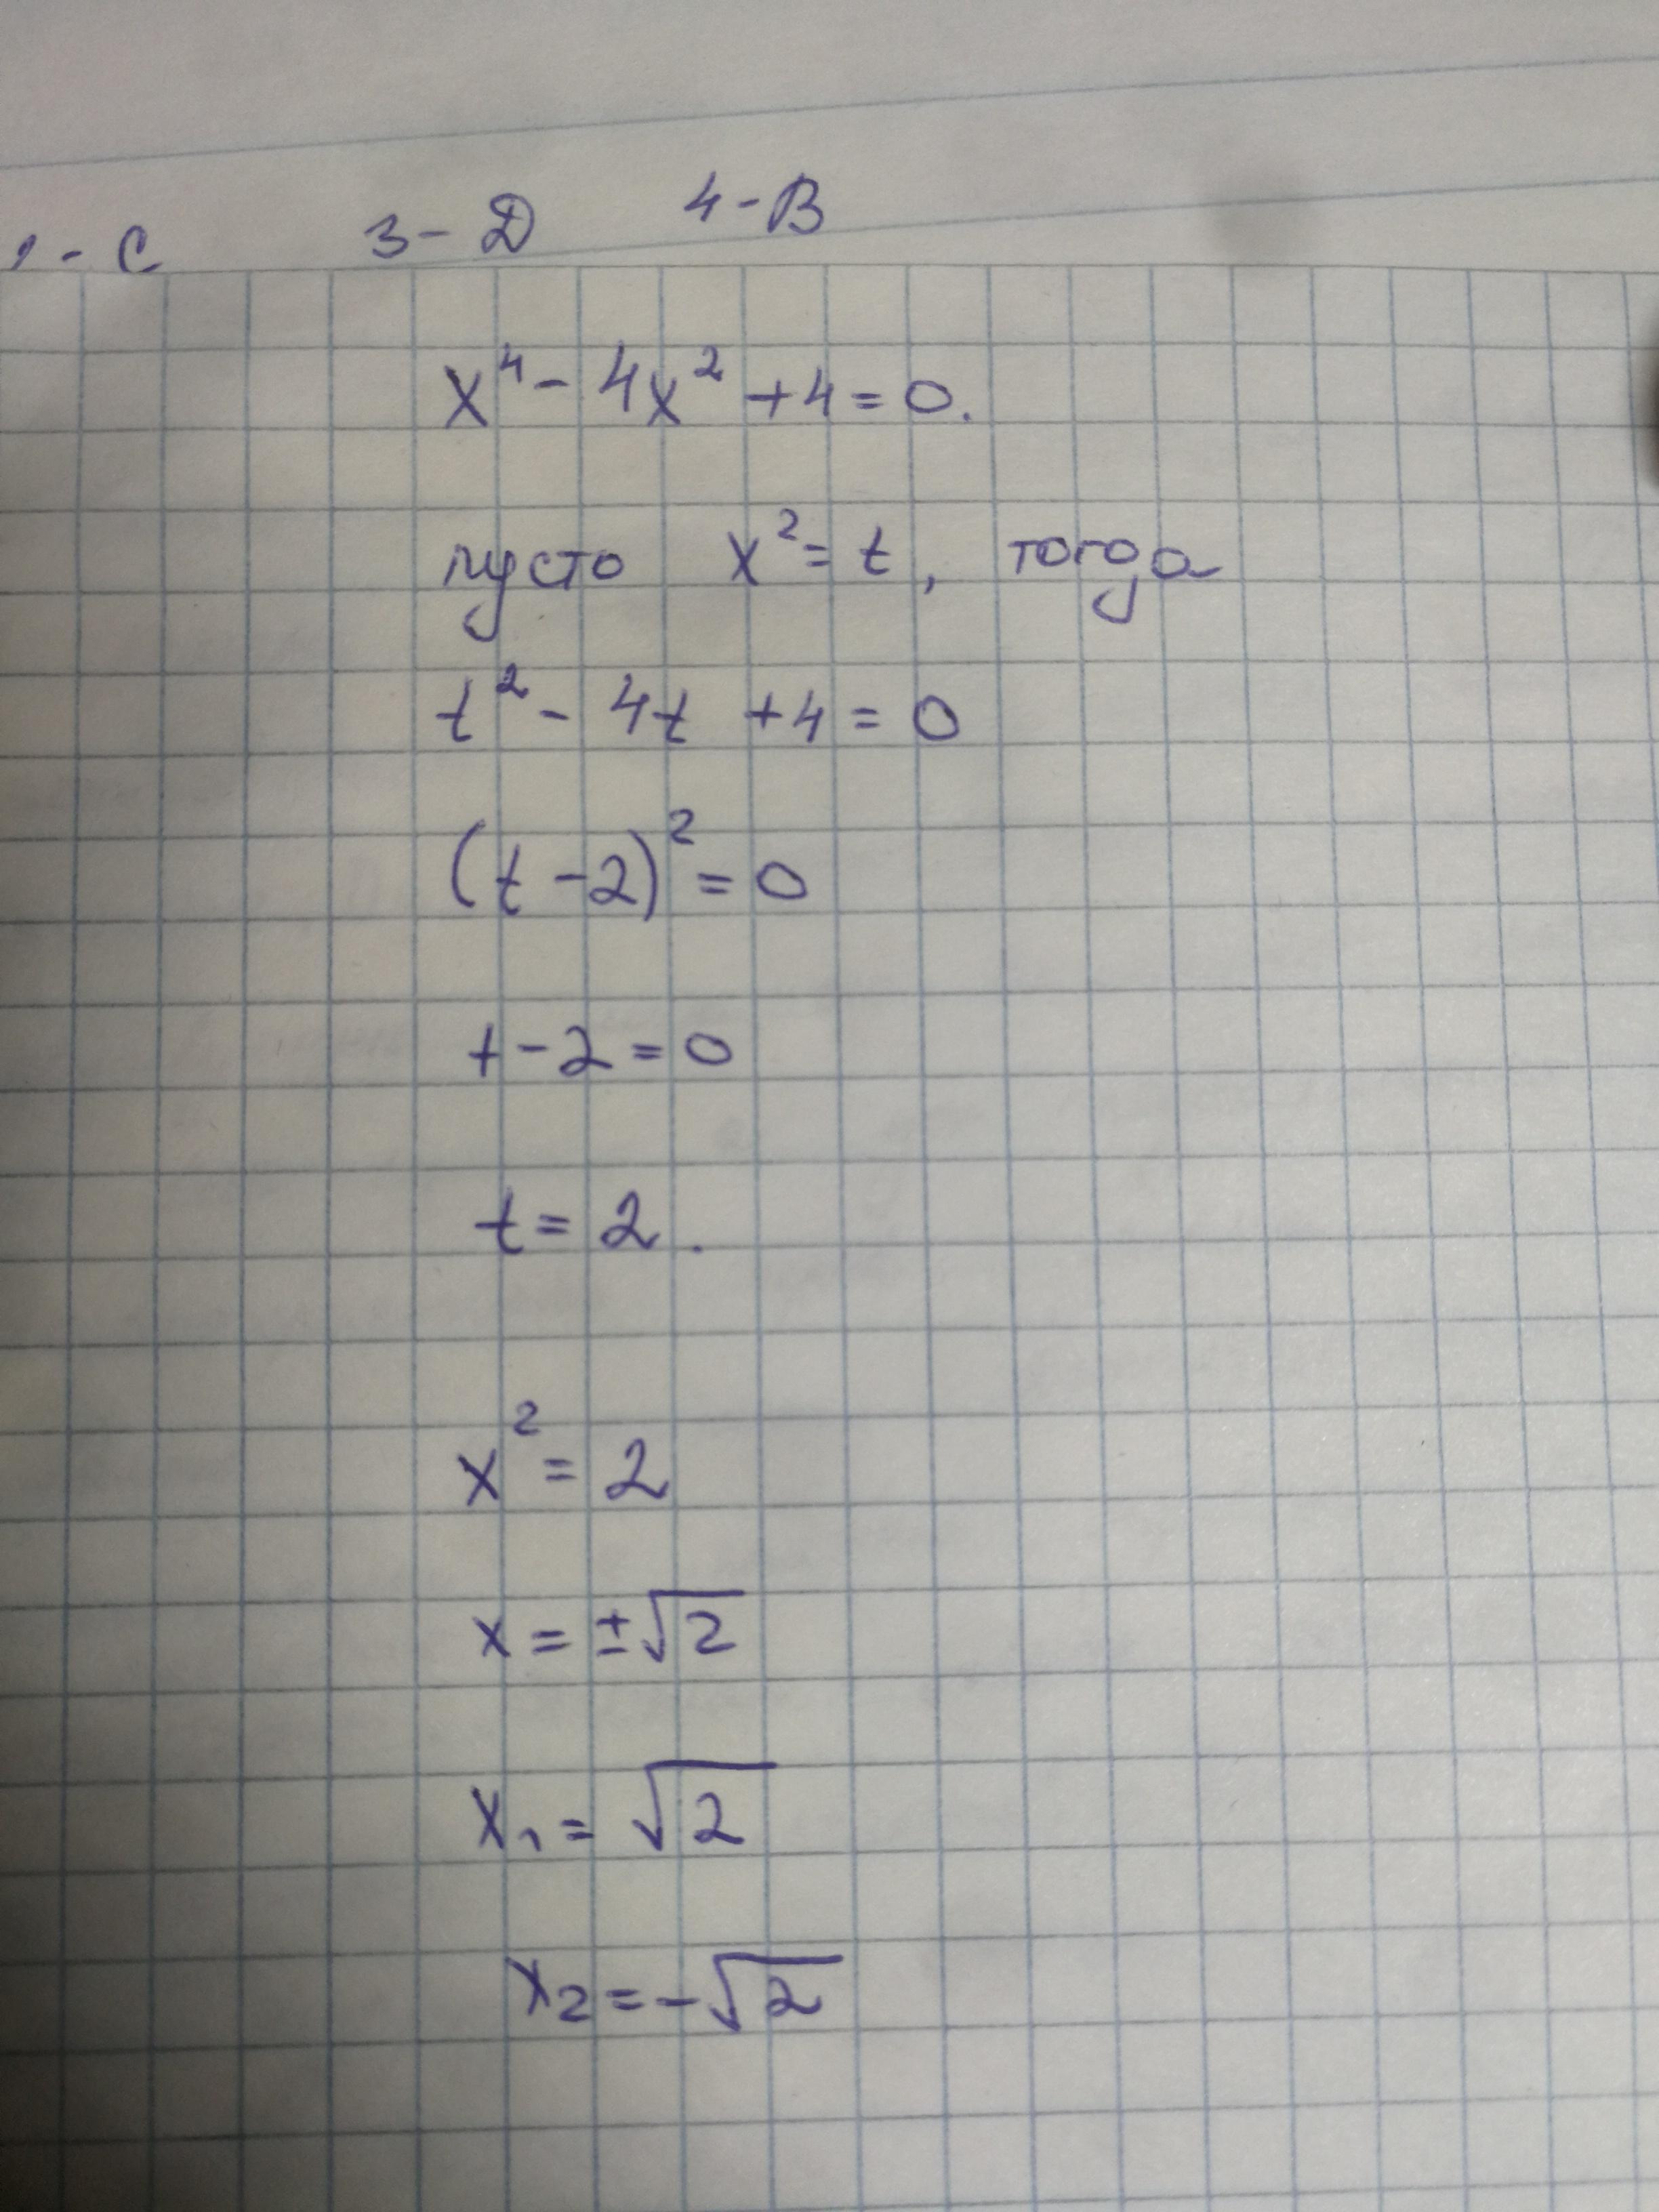 1 - C 3 - Д 4 - B
x⁴ - 4x² + 4 = 0.
пусто x² = t, тогда
t² - 4t + 4 = 0
(t - 2)² = 0
t - 2 = 0
t = 2.
x² = 2
x = ±√2
x₁ = √2
x₂ = -√2